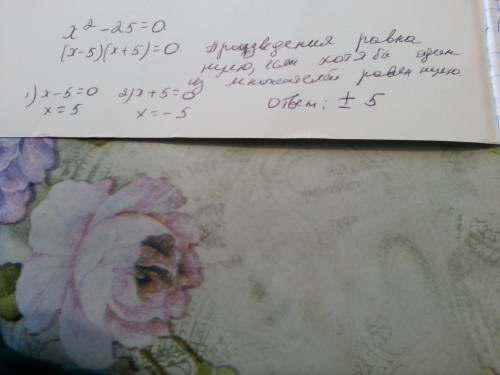 x² - 25 = 0
(x-5)(x+5) = 0.
Произведения равна
нулю, если хотя бы один
из множителей равен нулю.
1) x-5=0 2) x+5=0
x=5 x=-5
Ответ: ± 5